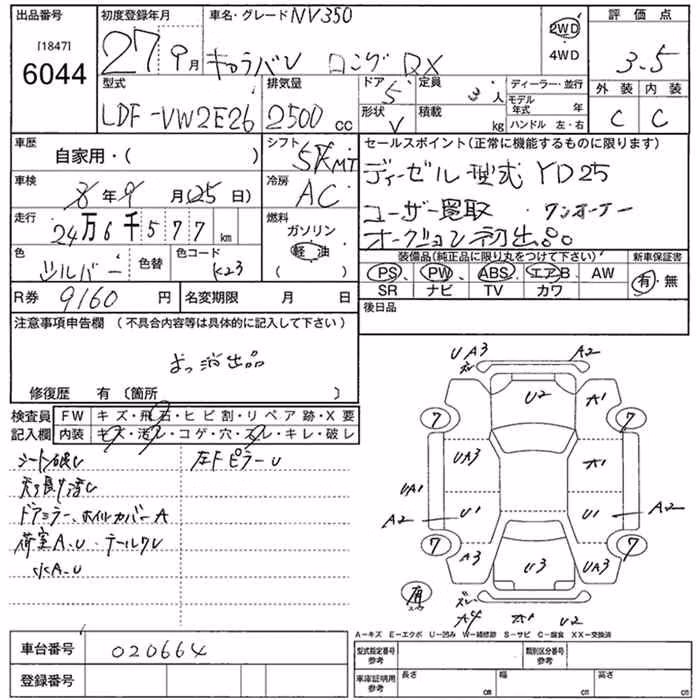 出品番号 初度登録年月 車名・グレード NV350 評価点
[1847]
6044 27年9月 キャラバン ロング DX 2WD 4WD 3.5
型式 排気量 ドア 定員 ディーラー・並行 外装 内装
LDF-VW2E26 2500cc 5 3人 モデル年式 年 C C
形状 V 積載 kg ハンドル 左・右
車歴 シフト セールスポイント(正常に機能するものに限ります)
自家用・( ) 5 MT ディーゼル 型式 YD25
車検 冷房
8年9月(25日) AC ユーザー買取 ・ワンオーナー
走行 燃料
24万6千577km ガソリン オークション初出品
色 色替 色コード 軽油 装備品(純正品に限り丸をつけて下さい) 新車保証書
シルバー K23 ( ) PS PW ABS エアB AW 有・無
SR ナビ TV カワ
R券 9160円 名変期限 月 日 後日品
注意事項申告欄(不具合内容等は具体的に記入して下さい)
修復歴 有(箇所 )
UA3 A2
U2 A1
検査員 FW キズ・飛石・ヒビ割・リペア跡・X要
記入欄 内装 キズ・汚レ・コゲ・穴・スレ・キレ・破レ
7 7
シート破レ 左FピラーU
UA3 A1
UA1
ドアミラー、ホイルカバーA
A2 U1 U1 A2
荷室A、U・テールワレ
7 7
小A、U
A3 U3 UA3
有
A4 A1 U2
A-キズ E-エクボ U-凹み W-補修跡 S-サビ C-腐食 XX-交換済
車台番号 020664 型式指定番号 参考 類別区分番号 参考
登録番号 車庫証明用 参考 長さ cm 幅 cm 高さ cm